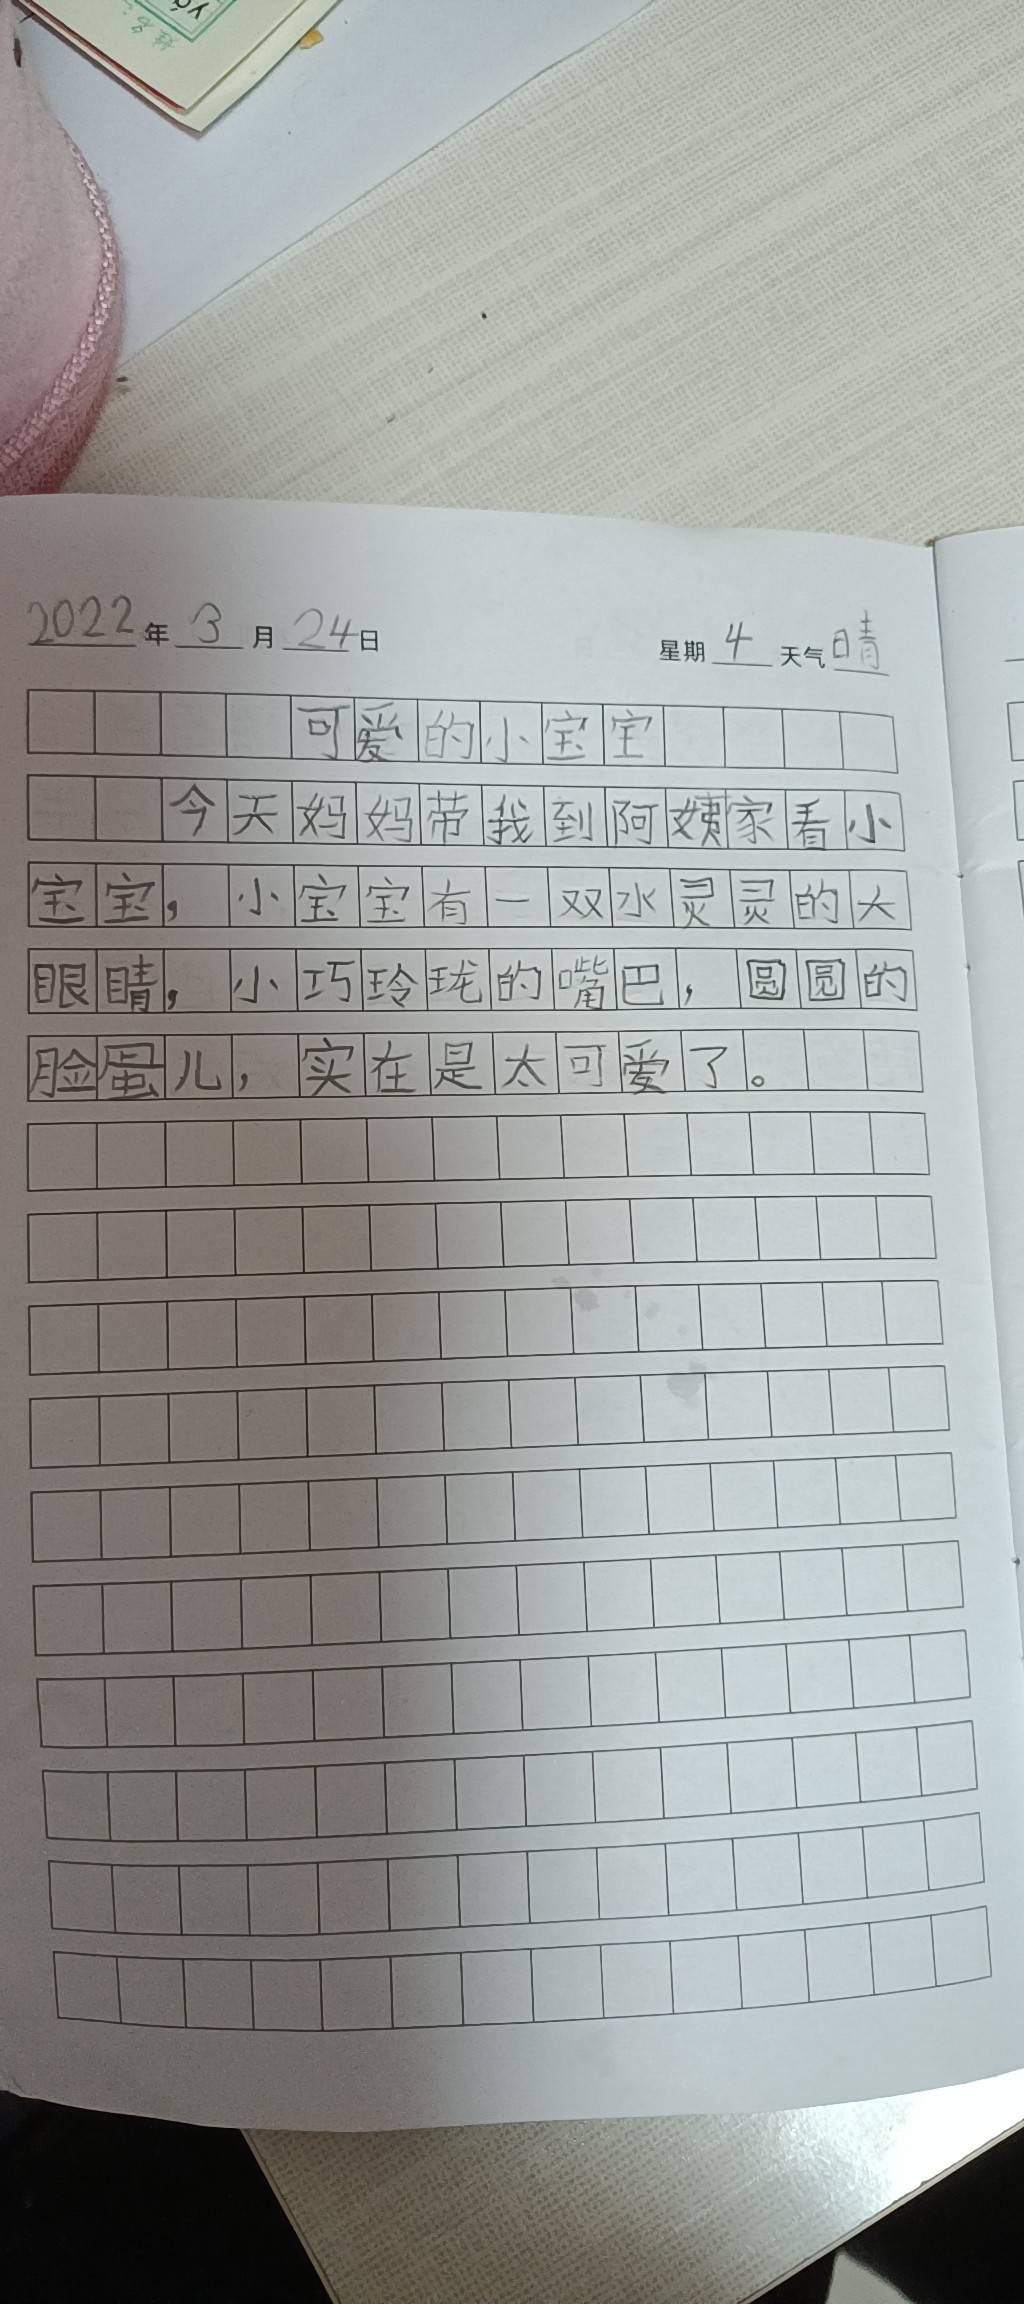 yá
姓名
2022年3月24日 星期4 天气晴
可爱的小宝宝
今天妈妈带我到阿姨家看小
宝宝，小宝宝有一双水灵灵的大
眼睛，小巧玲珑的嘴巴，圆圆的
脸蛋儿，实在是太可爱了。